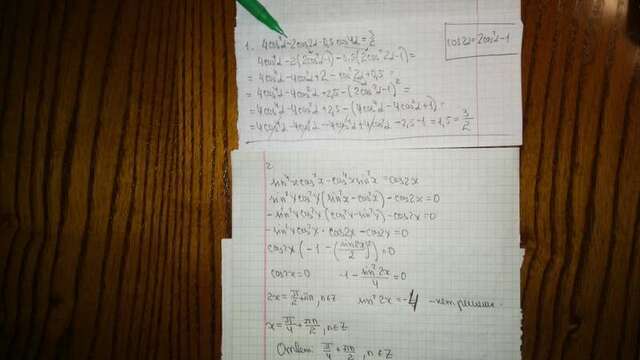 1. 4cos⁴α-2cos2α-0,5cos4α=3/2
cos2α=2cos²α-1
4cos⁴α-2(2cos²α-1)-0,5(2cos²2α-1)=
=4cos⁴α-4cos²α+2-cos²2α+0,5=
=4cos⁴α-4cos²α+2,5-(2cos²α-1)²=
=4cos⁴α-4cos²α+2,5-(4cos⁴α-4cos²α+1)=
=4cos⁴α-4cos²α-4cos⁴α+4cos²α+2,5-1=1,5=3/2
2.
sin⁴xcos²x-cos⁴xsin²x=cos2x
sin²xcos²x(sin²x-cos²x)-cos2x=0
-sin²xcos²x(cos²x-sin²x)-cos2x=0
-sin²xcos²x·cos2x-cos2x=0
cos2x(-1-(sin2x/2)²)=0
cos2x=0 -1-sin²2x/4=0
2x=π/2+πn, n∈Z sin²2x=-4 -нет решения
x=π/4+πn/2, n∈Z
Ответ: π/4+πn/2, n∈Z